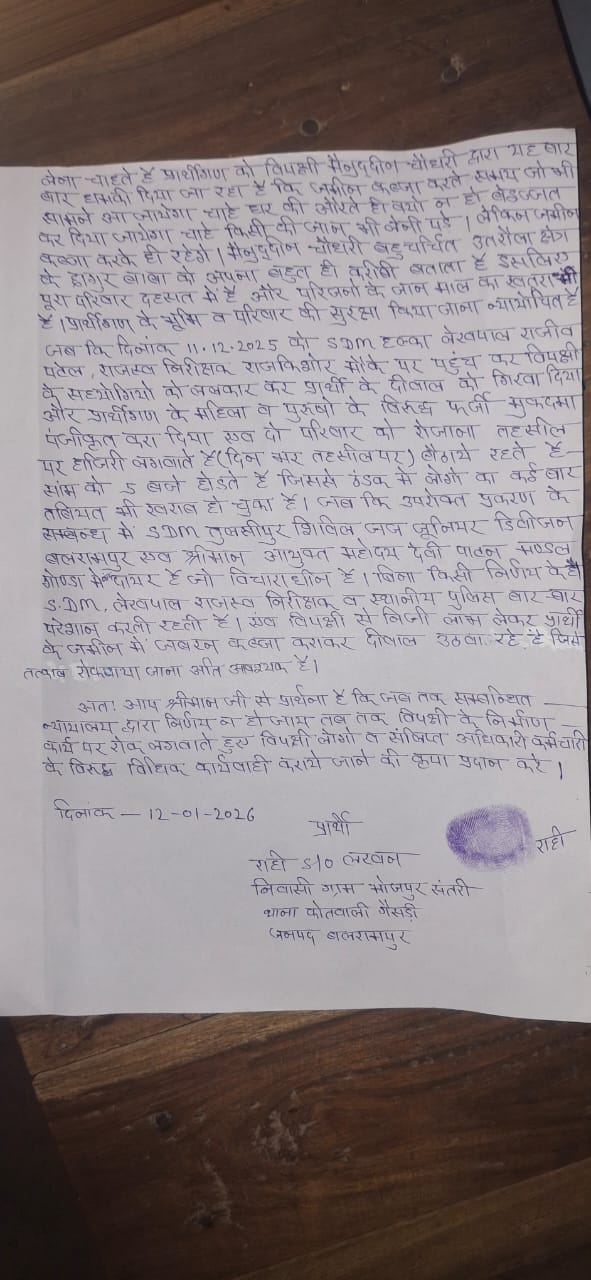 लेना चाहते है प्रार्थीगण को विपक्षी मैनुद्दीन चौधरी द्वारा यह बार
बार धमकी दिया जा रहा है कि जमीन कब्जा करते समय जो भी
सामने आ जायेगा चाहे घर की औरते ही क्यो न हो बेइज्जत
कर दिया जायेगा चाहे किसी की जान भी लेनी पड़े । लेकिन जमीन
कब्जा करके ही रहेगे । मैनुद्दीन चौधरी बहुचर्चित उतरौला क्षेत्र
के छांगुर बाबा को अपना बहुत ही करीबी बताता है इसलिए
पूरा परिवार दहसत मे है और परिजनो के जान माल का खतरा भी
है । प्रार्थीगण के भूमि व परिवार की सुरक्षा किया जाना न्यायोचित है
जब कि दिनांक 11.12.2025 को SDM हल्का लेखपाल राजीव
पटेल, राजस्व निरीक्षक राजकिशोर मौके पर पहुंच कर विपक्षी
के सहयोगियो को ललकार कर प्रार्थी के दीवाल को गिरवा दिया
और प्रार्थीगण के महिला व पुरुषो के विरुद्ध फर्जी मुकदमा
पंजीकृत करा दिया एव दो परिवार को रोजाना तहसील
पर हाजिरी लगवाते है (दिन भर तहसील पर) बैठाये रहते है
सांम को 5 बजे छोडते है जिससे ठंडक मे लोगो का कई बार
तबियत भी खराब हो चुका है । जब कि उपरोक्त प्रकरण के
सम्बन्ध मे SDM तुलसीपुर सिविल जज जूनियर डिवीजन
बलरामपुर एव श्रीमान आयुक्त महोदय देवी पाटन मण्डल
गोण्डा मे दायर है जो विचाराधीन है । बिना किसी निर्णय के ही
S.D.M, लेखपाल राजस्व निरीक्षक व स्थानीय पुलिस बार-बार
परेशान करती रहती है । एव विपक्षी से निजी लाभ लेकर प्रार्थी
के जमीन मे जबरन कब्जा कराकर दीवाल उठवा रहे है जिसे
तत्काल रोकवाया जाना अति आवश्यक है ।
अतः आप श्रीमान जी से प्रार्थना है कि जब तक सम्बन्धित
न्यायालय द्वारा निर्णय न हो जाय तब तक विपक्षी के निर्माण
कार्य पर रोक लगवाते हुए विपक्षी लोगो व संलिप्त अधिकारी कर्मचारी
के विरुद्ध विधिक कार्यवाही कराये जाने की कृपा प्रदान करे ।
दिनांक — 12-01-2026
प्रार्थी
राही
राही S/O लखन
निवासी ग्राम भोजपुर संतरी
थाना कोतवाली गैसड़ी
जनपद बलरामपुर